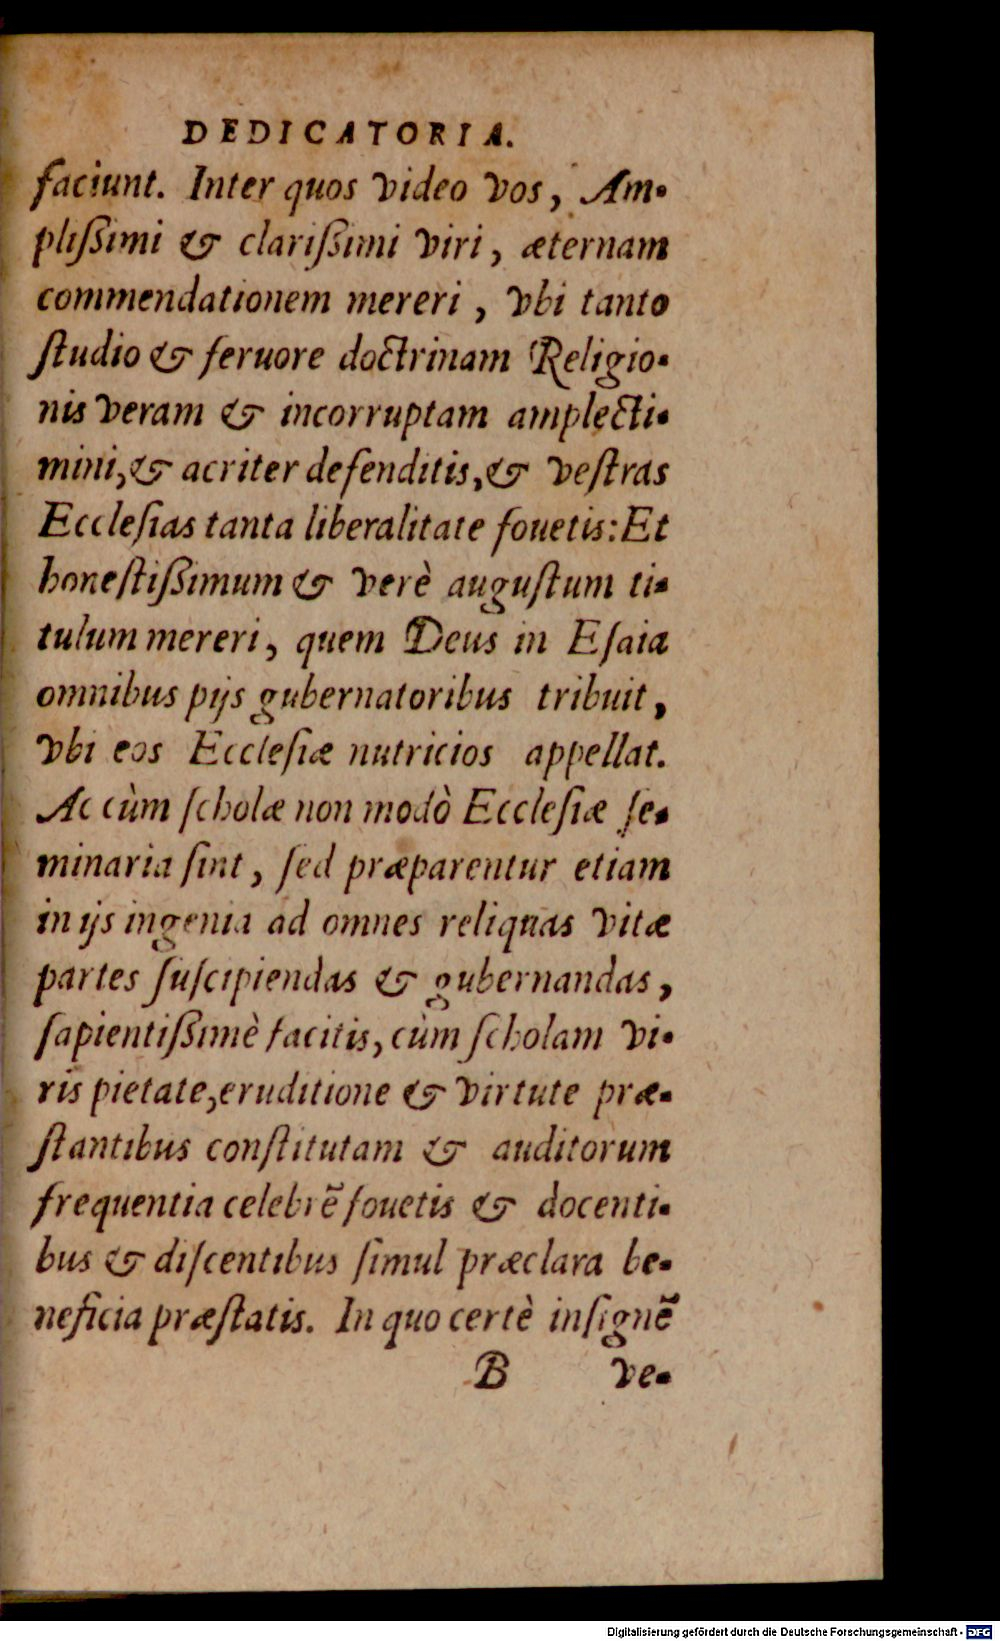 DEDICATORIA.
faciunt. Inter quos video vos, Am-
plißimi & clarißimi viri, æternam
commendationem mereri, vbi tanto
ſtudio & feruore doctrinam Religio-
nis veram & incorruptam amplecti-
mini,& acriter defenditis,& veſtras
Eccleſias tanta liberalitate fouetis:Et
honeſtißimum & verè auguſtum ti-
tulum mereri, quem Deus in Eſaia
omnibus pijs gubernatoribus tribuit,
vbi eos Eccleſiæ nutricios appellat.
Ac cùm ſcholæ non modò Eccleſiæ ſe-
minaria ſint, ſed præparentur etiam
in ijs ingenia ad omnes reliquas vitæ
partes ſuſcipiendas & gubernandas,
ſapientißimè facitis, cùm ſcholam vi-
ris pietate,eruditione & virtute præ-
ſtantibus conſtitutam & auditorum
frequentia celebrẽ fouetis & docenti-
bus & diſcentibus ſimul præclara be-
neficia præſtatis. In quo certè inſignẽ
B ve-
Digitalisierung gefördert durch die Deutsche Forschungsgemeinschaft - DFG